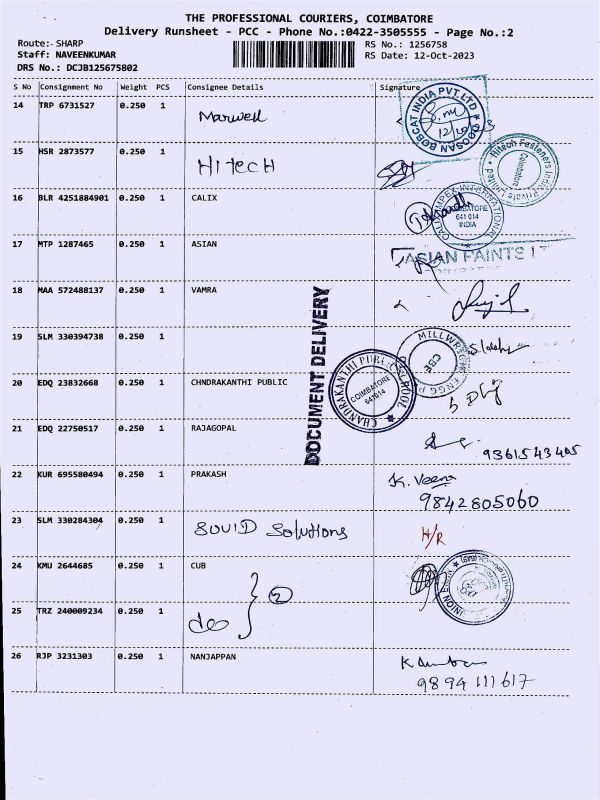 THE PROFESSIONAL COURIERS, COIMBATORE
Delivery Runsheet - PCC - Phone No.:0422-3505555 - Page No.:2
Route:- SHARP
RS No.: 1256758
Staff: NAVEENKUMAR
RS Date: 12-Oct-2023
DRS No.: DCJB125675802
S No Consignment No Weight PCS Consignee Details Signature
14 TRP 6731527 0.250 1 Marwell
BOBCAT INDIA PVT.LTD
15 HSR 2873577 0.250 1 HITECH
Hitech Fasteners India Private Limited
Coimbatore
16 BLR 4251884901 0.250 1 CALIX
IMPEX INTERNATIONAL
641 014
INDIA
17 MTP 1287465 0.250 1 ASIAN
ASIAN PAINTS
18 MAA 572488137 0.250 1 VAMRA
DOCUMENT DELIVERY
19 SLM 330394738 0.250 1
CBE
20 EDQ 23832668 0.250 1 CHNDRAKANTHI PUBLIC
CHANDRAKANTHI PUBLIC SCHOOL
COIMBATORE
641014
21 EDQ 22750517 0.250 1 RAJAGOPAL
9361543405
22 KUR 695580494 0.250 1 PRAKASH K. Veena
9842805060
23 SLM 330284304 0.250 1 SOUID Solutions H/R
24 KMU 2644685 0.250 1 CUB
2
25 TRZ 240009234 0.250 1 do
26 RJP 3231303 0.250 1 NANJAPPAN
9894111617